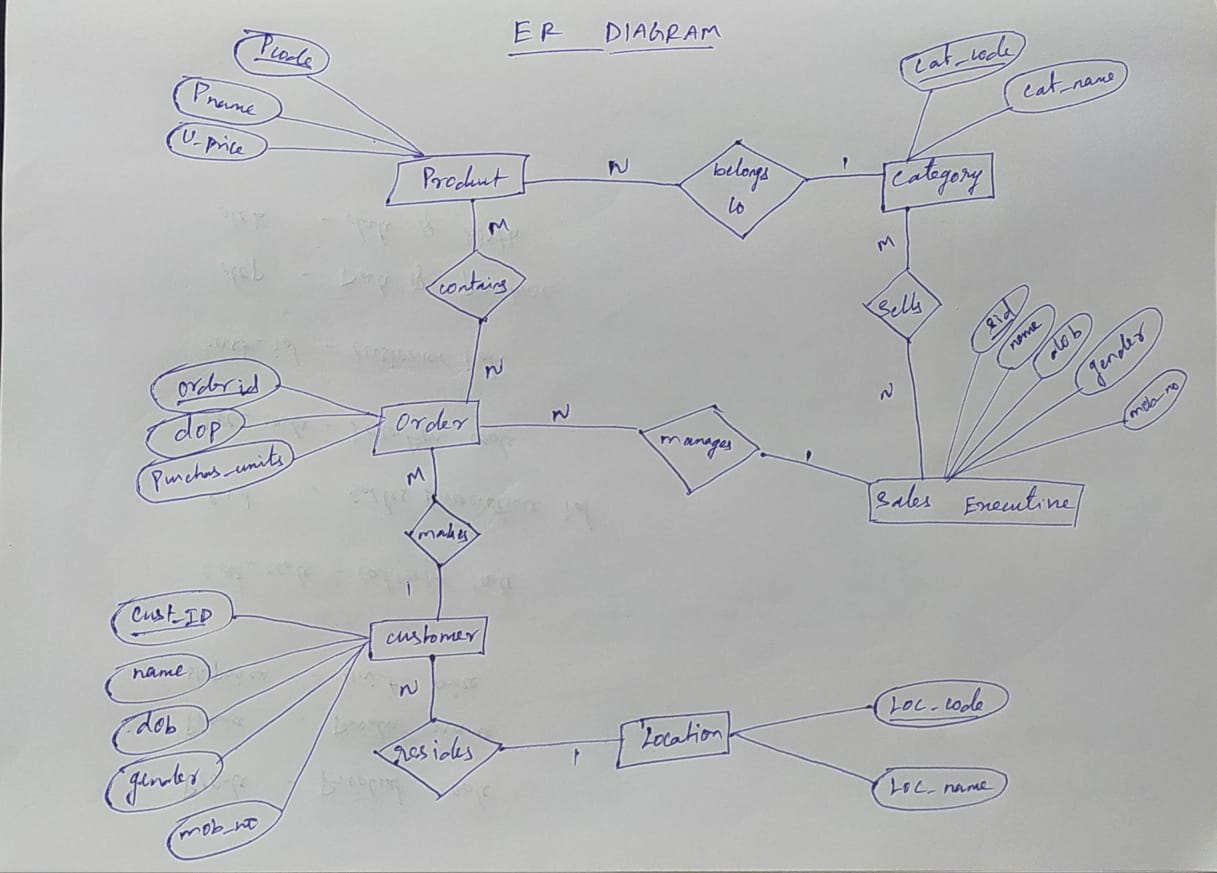 ER DIAGRAM
Pcode
Pname
U-price
Product
N
belongs
to
1
Category
Cat_code
Cat_name
M
contains
N
M
Sells
N
sid
name
dob
gender
mob_no
Sales Executive
orderid
dop
Purchas_units
Order
N
manages
1
M
makes
1
Cust_ID
name
dob
gender
mob_no
customer
N
resides
1
Location
Loc_code
Loc_name